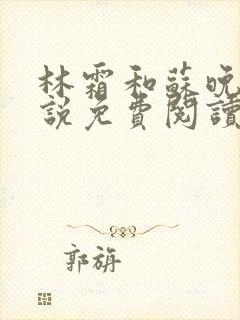 林霜和蘇晚
說免費閱讀
郭旃